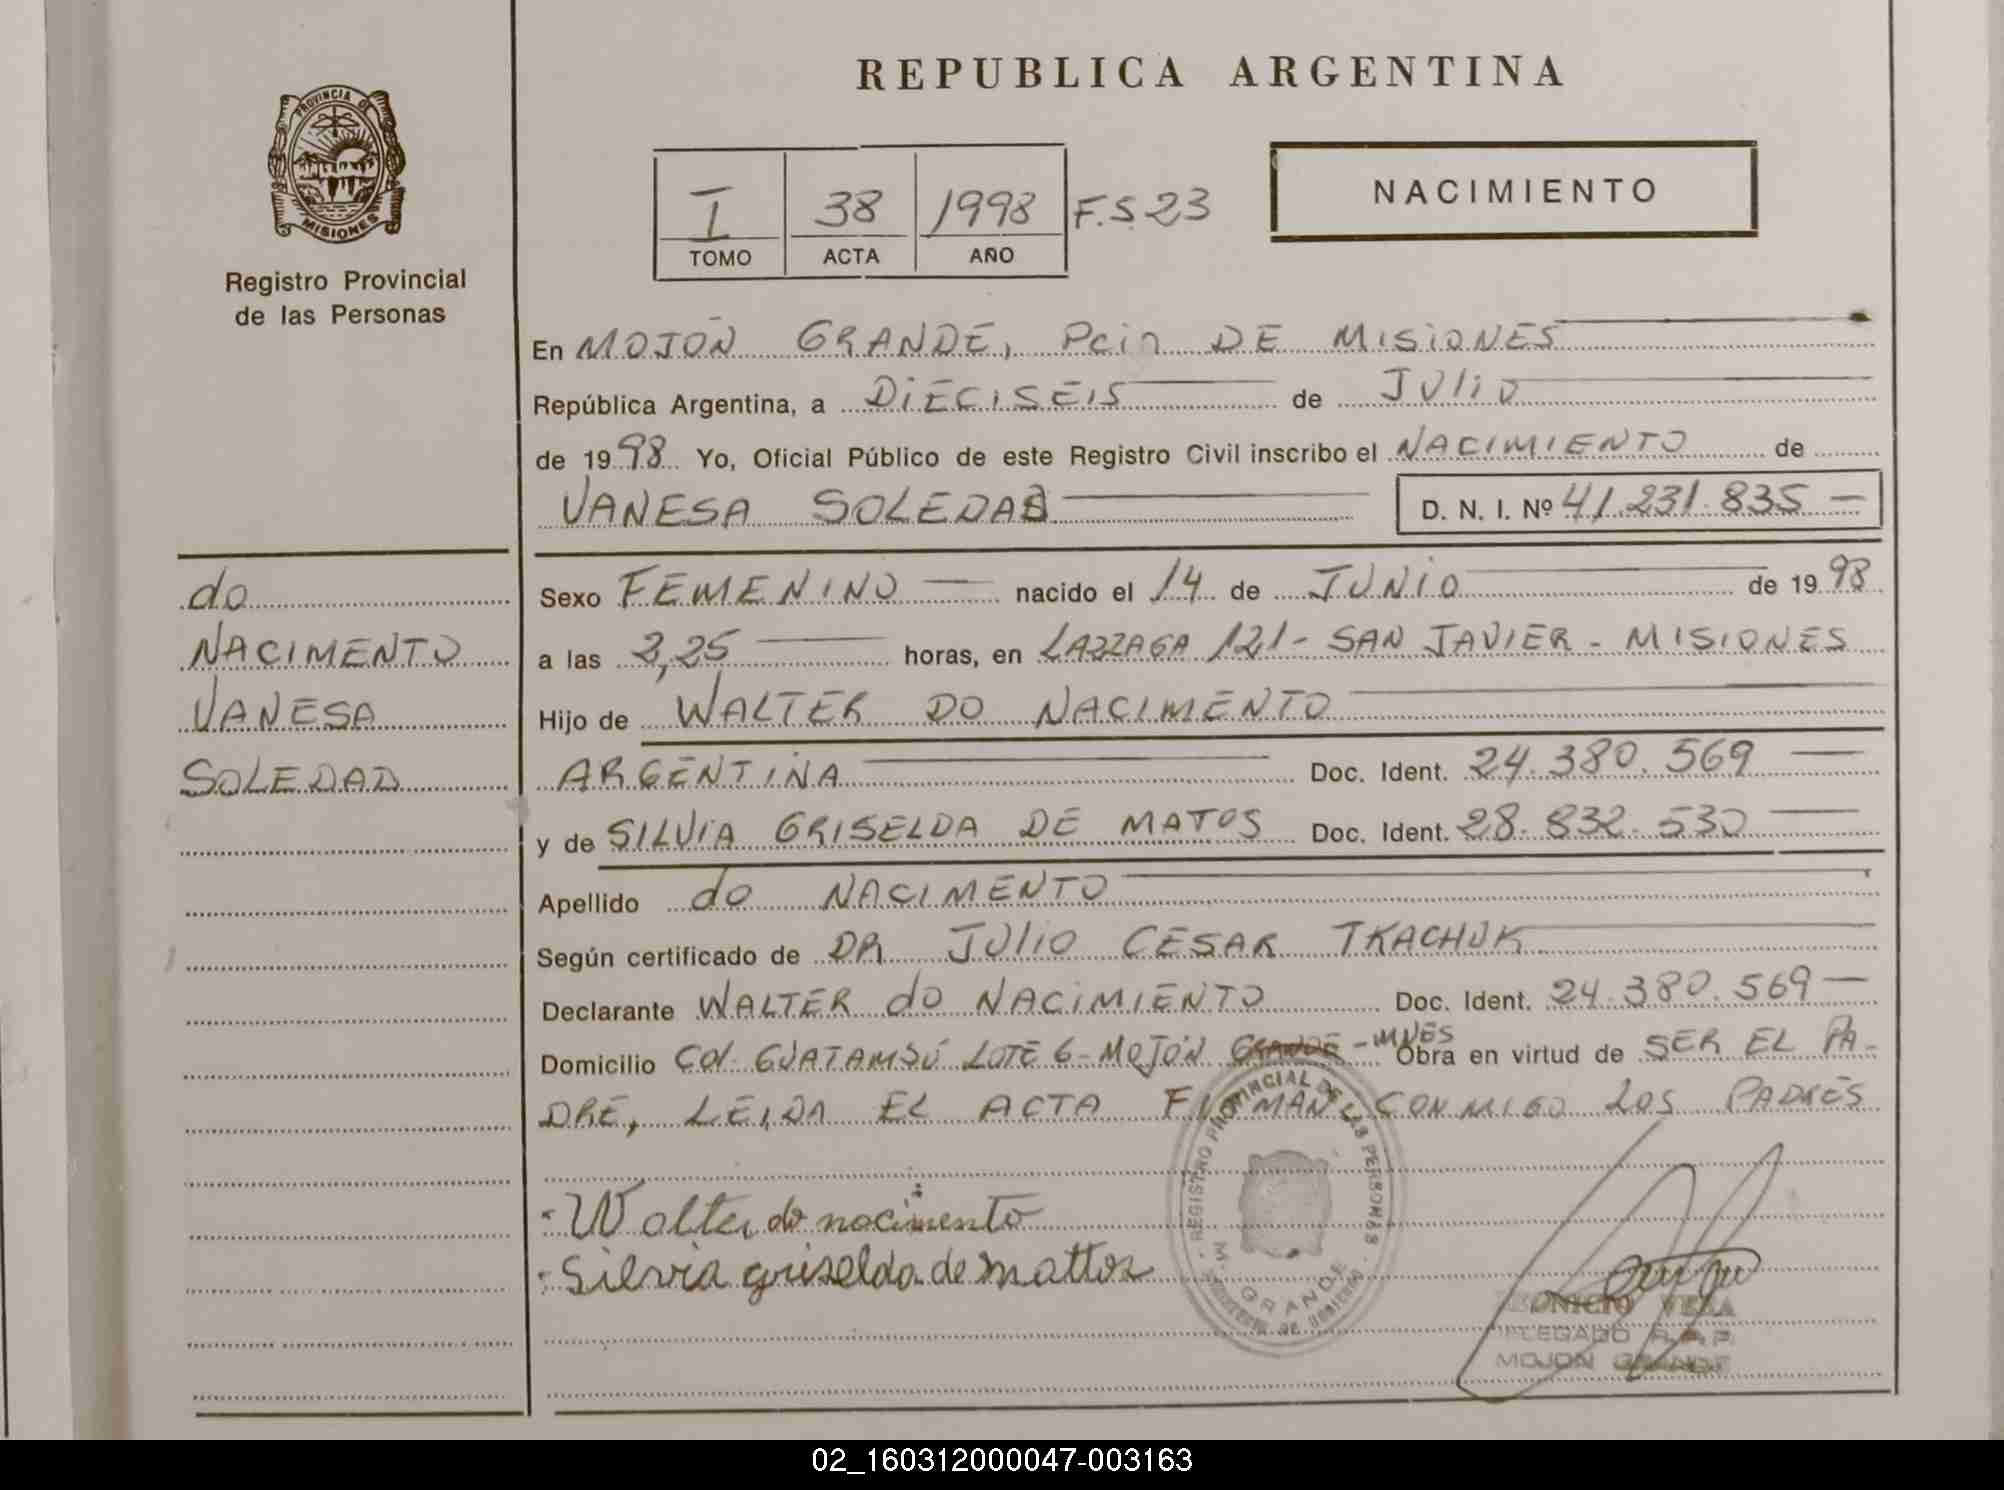 REPUBLICA ARGENTINA
PROVINCIA DE MISIONES
Registro Provincial
de las Personas
I 38 1998 F.S 23
TOMO ACTA AÑO
NACIMIENTO
En MOJÓN GRANDE, Pcia DE MISIONES
República Argentina, a DIECISEIS de JULIO
de 1998 Yo, Oficial Público de este Registro Civil inscribo el NACIMIENTO de
VANESA SOLEDAD D. N. I. Nº 41.231.835 —
do
NACIMENTO
VANESA
SOLEDAD
Sexo FEMENINO — nacido el 14 de JUNIO de 1998
a las 2,25 horas, en LAZZAGA 121 - SAN JAVIER - MISIONES
Hijo de WALTER DO NACIMENTO
ARGENTINA Doc. Ident. 24.380.569 —
y de SILVIA GRISELDA DE MATOS Doc. Ident. 28.832.530 —
Apellido do NACIMENTO
Según certificado de DR JULIO CESAR TKACHUK
Declarante WALTER do NACIMIENTO Doc. Ident. 24.380.569 —
Domicilio Col. GUATAMBÚ LOTE 6 - MOJÓN GRANDE - MNES Obra en virtud de SER EL PA-
DRE, LEIDA EL ACTA FIRMAN CONMIGO LOS PADRES
Walter do nacimento
Silvia griselda de mattos
REGISTRO PROVINCIAL DE LAS PERSONAS
M. GRANDE
VERA
DELEGADO R.P.P.
MOJON GRANDE
02_160312000047-003163